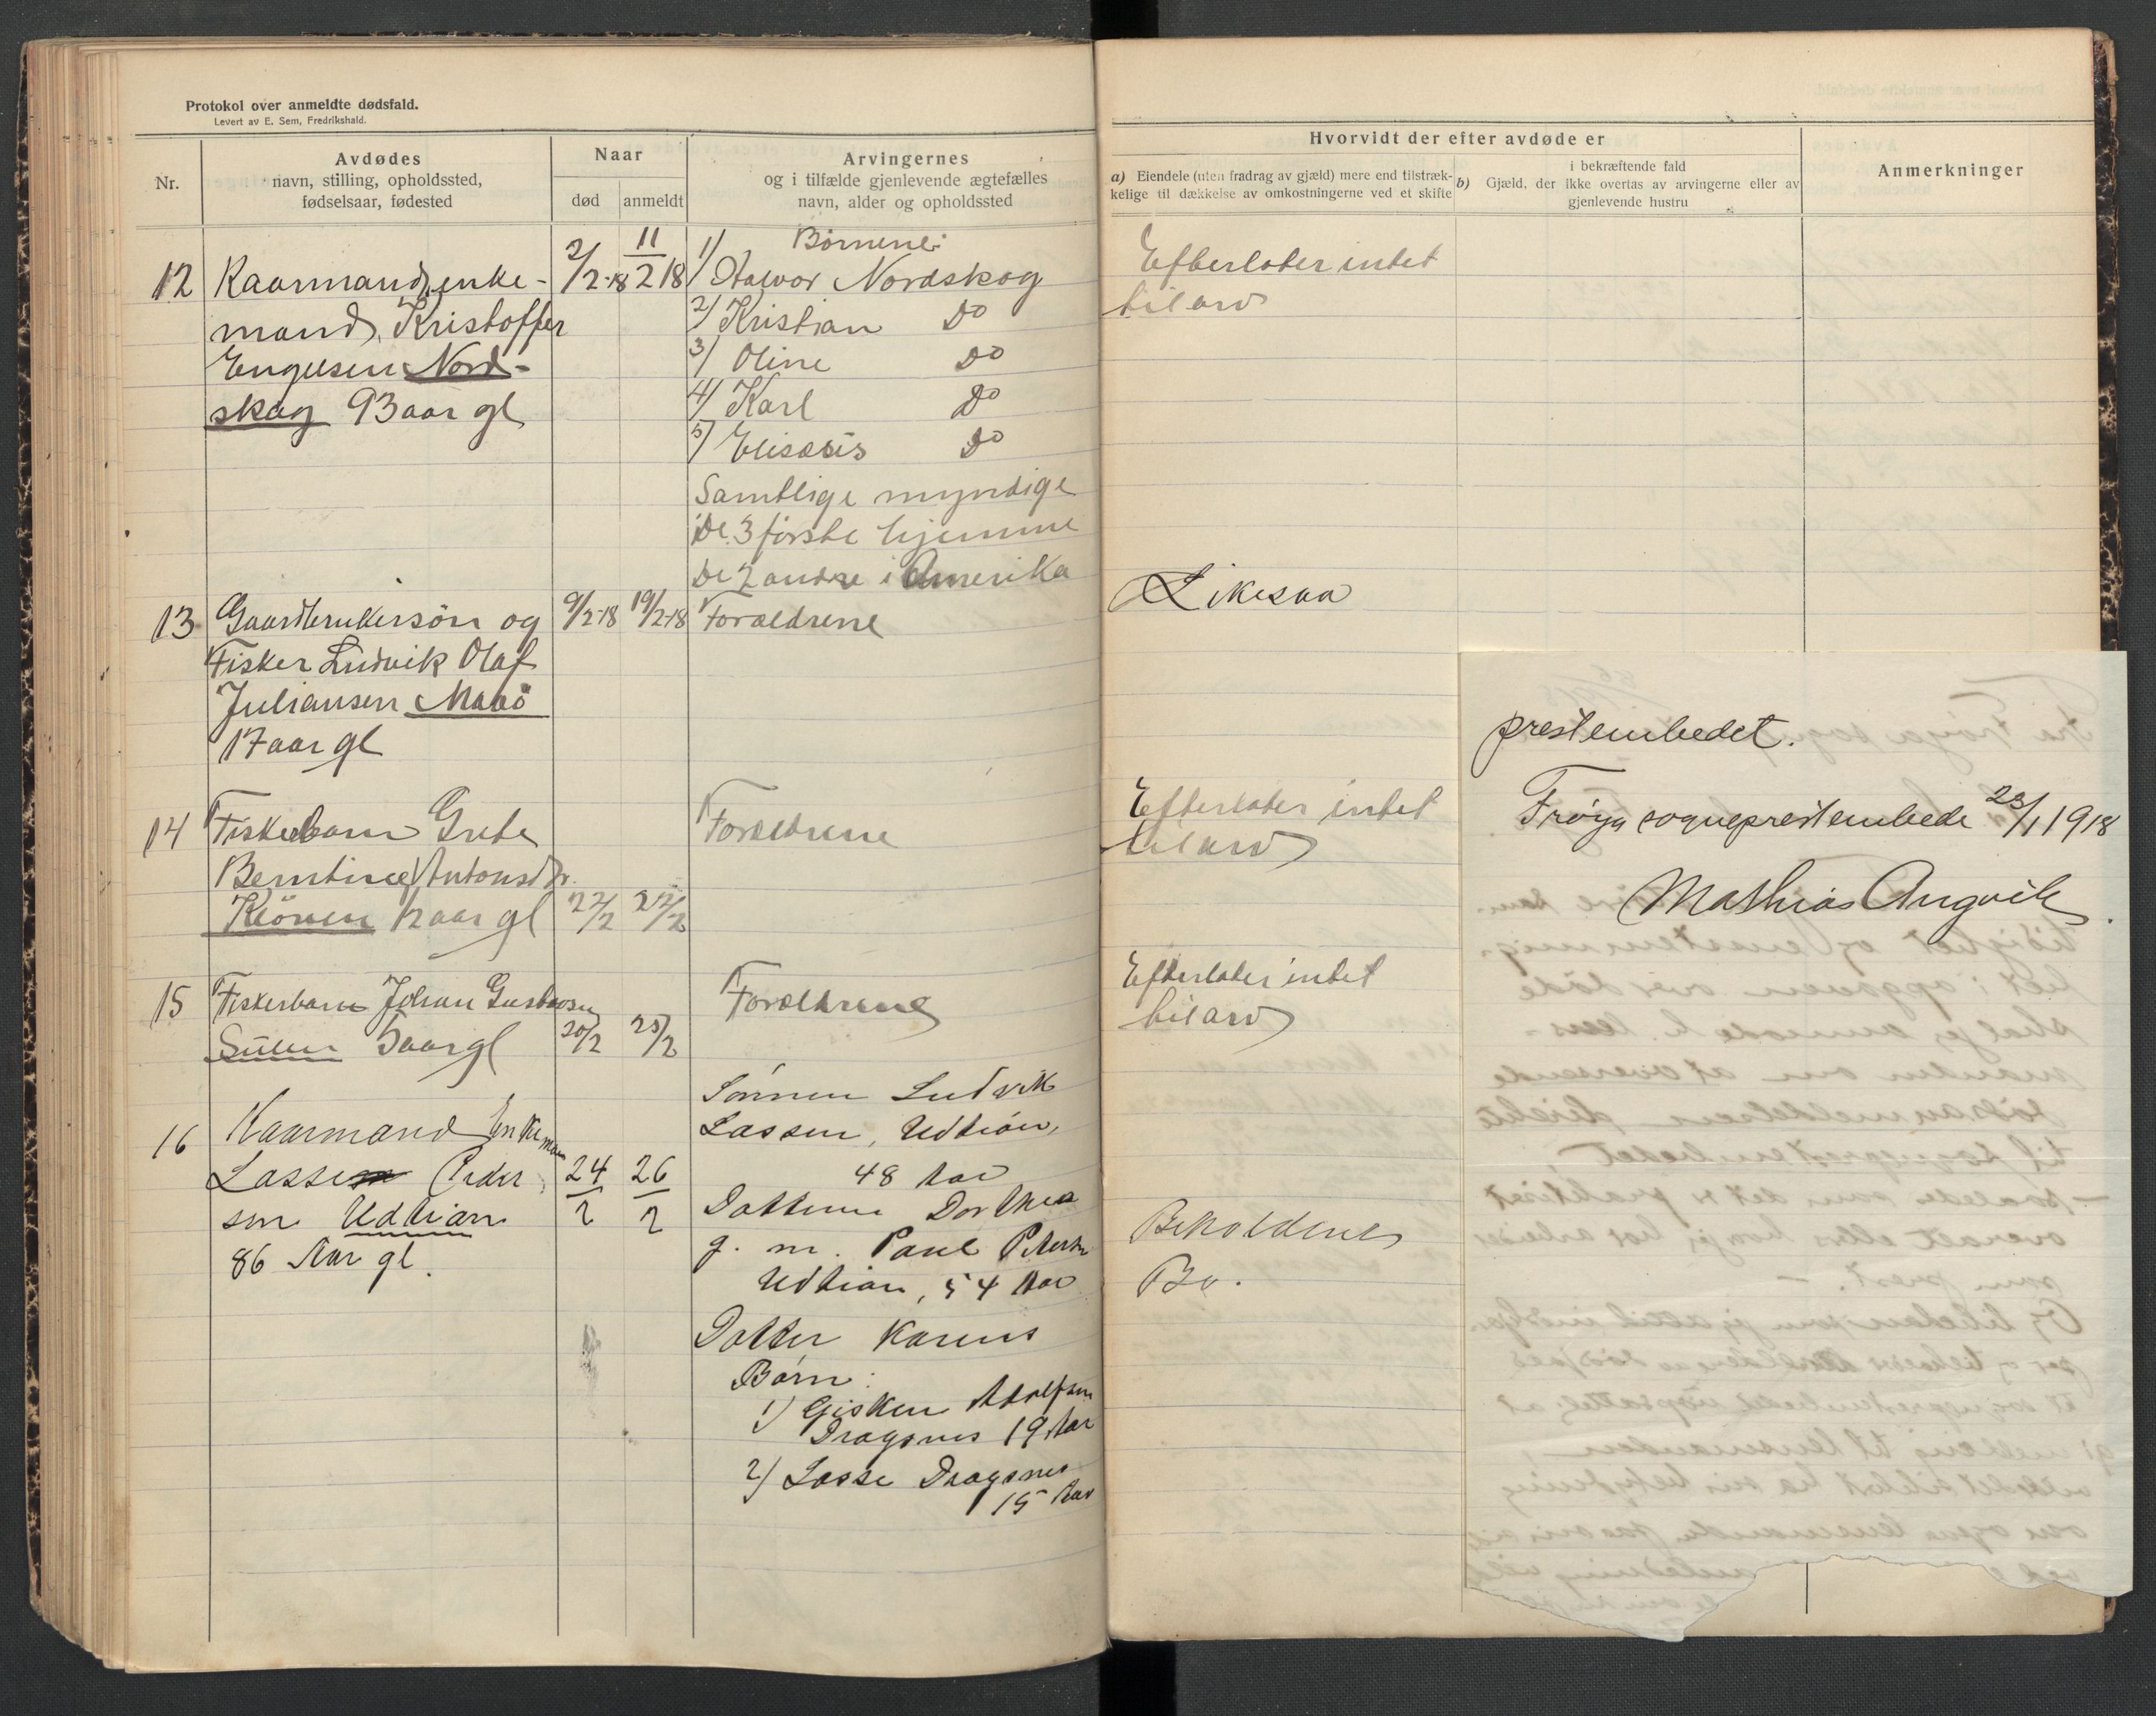 Protokol over anmeldte dødsfald.
Levert av E. Sem, Fredrikshald.
Nr.
Avdødes
navn, stilling, opholdssted,
fødselsaar, fødested
Naar
død
anmeldt
Arvingernes
og i tilfælde gjenlevende ægtefælles
navn, alder og opholdssted
Hvorvidt der efter avdøde er
a) Eiendele (uten fradrag av gjæld) mere end tilstræk-
kelige til dækkelse av omkostningerne ved et skifte
i bekræftende fald
b) Gjæld, der ikke overtas av arvingerne eller av
gjenlevende hustru
Anmerkninger
12
Kaarmand, enke-
mand, Kristoffer
Engelsen Nord-
skag 93 aar gl
2/2-18
11/2 18
Børnene:
1/ Halvor Nordskog
2/ Kristian Do
3/ Oline Do
4/ Karl Do
5/ Do
Samtlige myndige
De 3 første hjemme
De 2 andre i Amerika
Efterlater intet
til arv
13
Gaardbrukersøn og
Fisker Ludvik Olaf
Juliansen Maaö
17 aar gl
9/2-18
19/2-18
Forældrene
Likesaa
14
Fiskerbarn Grete
Berntine Antonsdtr.
Kløven aar gl
22/2
Forældrene
Efterlater intet
til arv
15
Fiskerbarn Johan Gustavsen
Sulen aar gl
20/2
25/2
Forældrene
Efterlater intet
til arv
16
Kaarmand Enkeman
Lasse Peder
sen Udtian
86 Aar gl.
24/2
26/2
Sønnen Ludvik
Lassen, Udtian,
48 Aar
Datteren Dorthea
g. m. Paul Peters
Udtian, 54 Aar
Datter Karens
Børn:
1) Gisken Adolfsen
Dragsnes 19 Aar
2) Lasse Dragsnes
15 Aar
Beholdent
Bo.
prestembedet.
Frøya sogneprestembede 23/1 1918
Mathias Angvik.